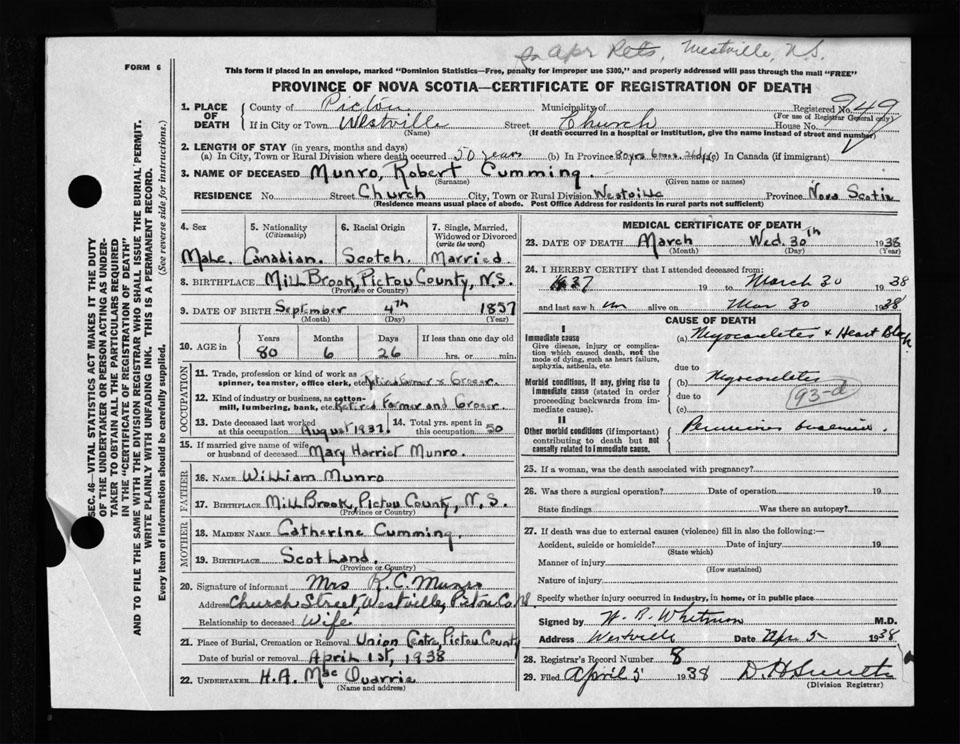 Apr Rets, Westville, N.S.
FORM 6
This form if placed in an envelope, marked "Dominion Statistics—Free, penalty for improper use $300," and properly addressed will pass through the mail "FREE"
PROVINCE OF NOVA SCOTIA—CERTIFICATE OF REGISTRATION OF DEATH
1. PLACE OF DEATH County of Pictou Municipality of Registered No. 949
(For use of Registrar General only)
If in City or Town Westville Street Church House No.
(Name) (If death occurred in a hospital or institution, give the name instead of street and number)
2. LENGTH OF STAY (in years, months and days)
(a) In City, Town or Rural Division where death occurred 50 years (b) In Province 80 yrs 6 mos. 26 dys (c) In Canada (if immigrant)
3. NAME OF DECEASED Munro, Robert Cumming.
(Surname) (Given name or names)
RESIDENCE No. Street Church City, Town or Rural Division Westville Province Nova Scotia
(Residence means usual place of abode. Post Office Address for residents in rural parts not sufficient)
4. Sex 5. Nationality (Citizenship) 6. Racial Origin 7. Single, Married, Widowed or Divorced (write the word)
Male. Canadian. Scotch. Married.
8. BIRTHPLACE Mill Brook, Pictou County, N.S.
(Province or Country)
9. DATE OF BIRTH September 4th 1857
(Month) (Day) (Year)
10. AGE in Years Months Days If less than one day old
80 6 26 hrs. or min.
OCCUPATION
11. Trade, profession or kind of work as spinner, teamster, office clerk, etc. Retired Farmer & Grocer
12. Kind of industry or business, as cotton-mill, lumbering, bank, etc. Retired Farmer and Grocer
13. Date deceased last worked at this occupation August 1937. 14. Total yrs. spent in this occupation 50
15. If married give name of wife or husband of deceased Mary Harriet Munro.
FATHER
16. NAME William Munro
17. BIRTHPLACE Mill Brook, Pictou County, N.S.
(Province or Country)
MOTHER
18. MAIDEN NAME Catherine Cumming.
19. BIRTHPLACE Scotland.
(Province or Country)
20. Signature of informant Mrs R.C. Munro
Address Church Street, Westville, Pictou Co. N.S.
Relationship to deceased Wife
21. Place of Burial, Cremation or Removal Union Centre, Pictou County
Date of burial or removal April 1st, 1938
22. UNDERTAKER H.A. Mac Quarrie
(Name and address)
MEDICAL CERTIFICATE OF DEATH
23. DATE OF DEATH March Wed. 30th 1938
(Month) (Day) (Year)
24. I HEREBY CERTIFY that I attended deceased from:
1937 19 to March 30 1938
and last saw him alive on Mar 30 1938
CAUSE OF DEATH
I
Immediate cause
Give disease, injury or complication which caused death, not the mode of dying, such as heart failure, asphyxia, asthenia, etc.
(a) & Heart Block
due to
Morbid conditions, if any, giving rise to immediate cause (stated in order proceeding backwards from immediate cause).
(b)
due to 93-d
(c)
II
Other morbid conditions (if important) contributing to death but not causally related to immediate cause.
Pernicious anaemia.
25. If a woman, was the death associated with pregnancy?
26. Was there a surgical operation? Date of operation 19
State findings Was there an autopsy?
27. If death was due to external causes (violence) fill in also the following:—
Accident, suicide or homicide? Date of injury 19
(State which)
Manner of injury
(How sustained)
Nature of injury
Specify whether injury occurred in industry, in home, or in public place
Signed by W. B. Whitman M.D.
Address Westville Date Apr 5 1938
28. Registrar's Record Number 8
29. Filed April 5 1938 D. H. Smith
(Division Registrar)
SEC. 46—VITAL STATISTICS ACT MAKES IT THE DUTY
OF THE UNDERTAKER OR PERSON ACTING AS UNDER-
TAKER TO OBTAIN ALL THE PARTICULARS REQUIRED
IN THE "CERTIFICATE OF REGISTRATION OF DEATH"
AND TO FILE THE SAME WITH THE DIVISION REGISTRAR WHO SHALL ISSUE THE BURIAL PERMIT.
WRITE PLAINLY WITH UNFADING INK. THIS IS A PERMANENT RECORD.
Every item of information should be carefully supplied. (See reverse side for instructions.)